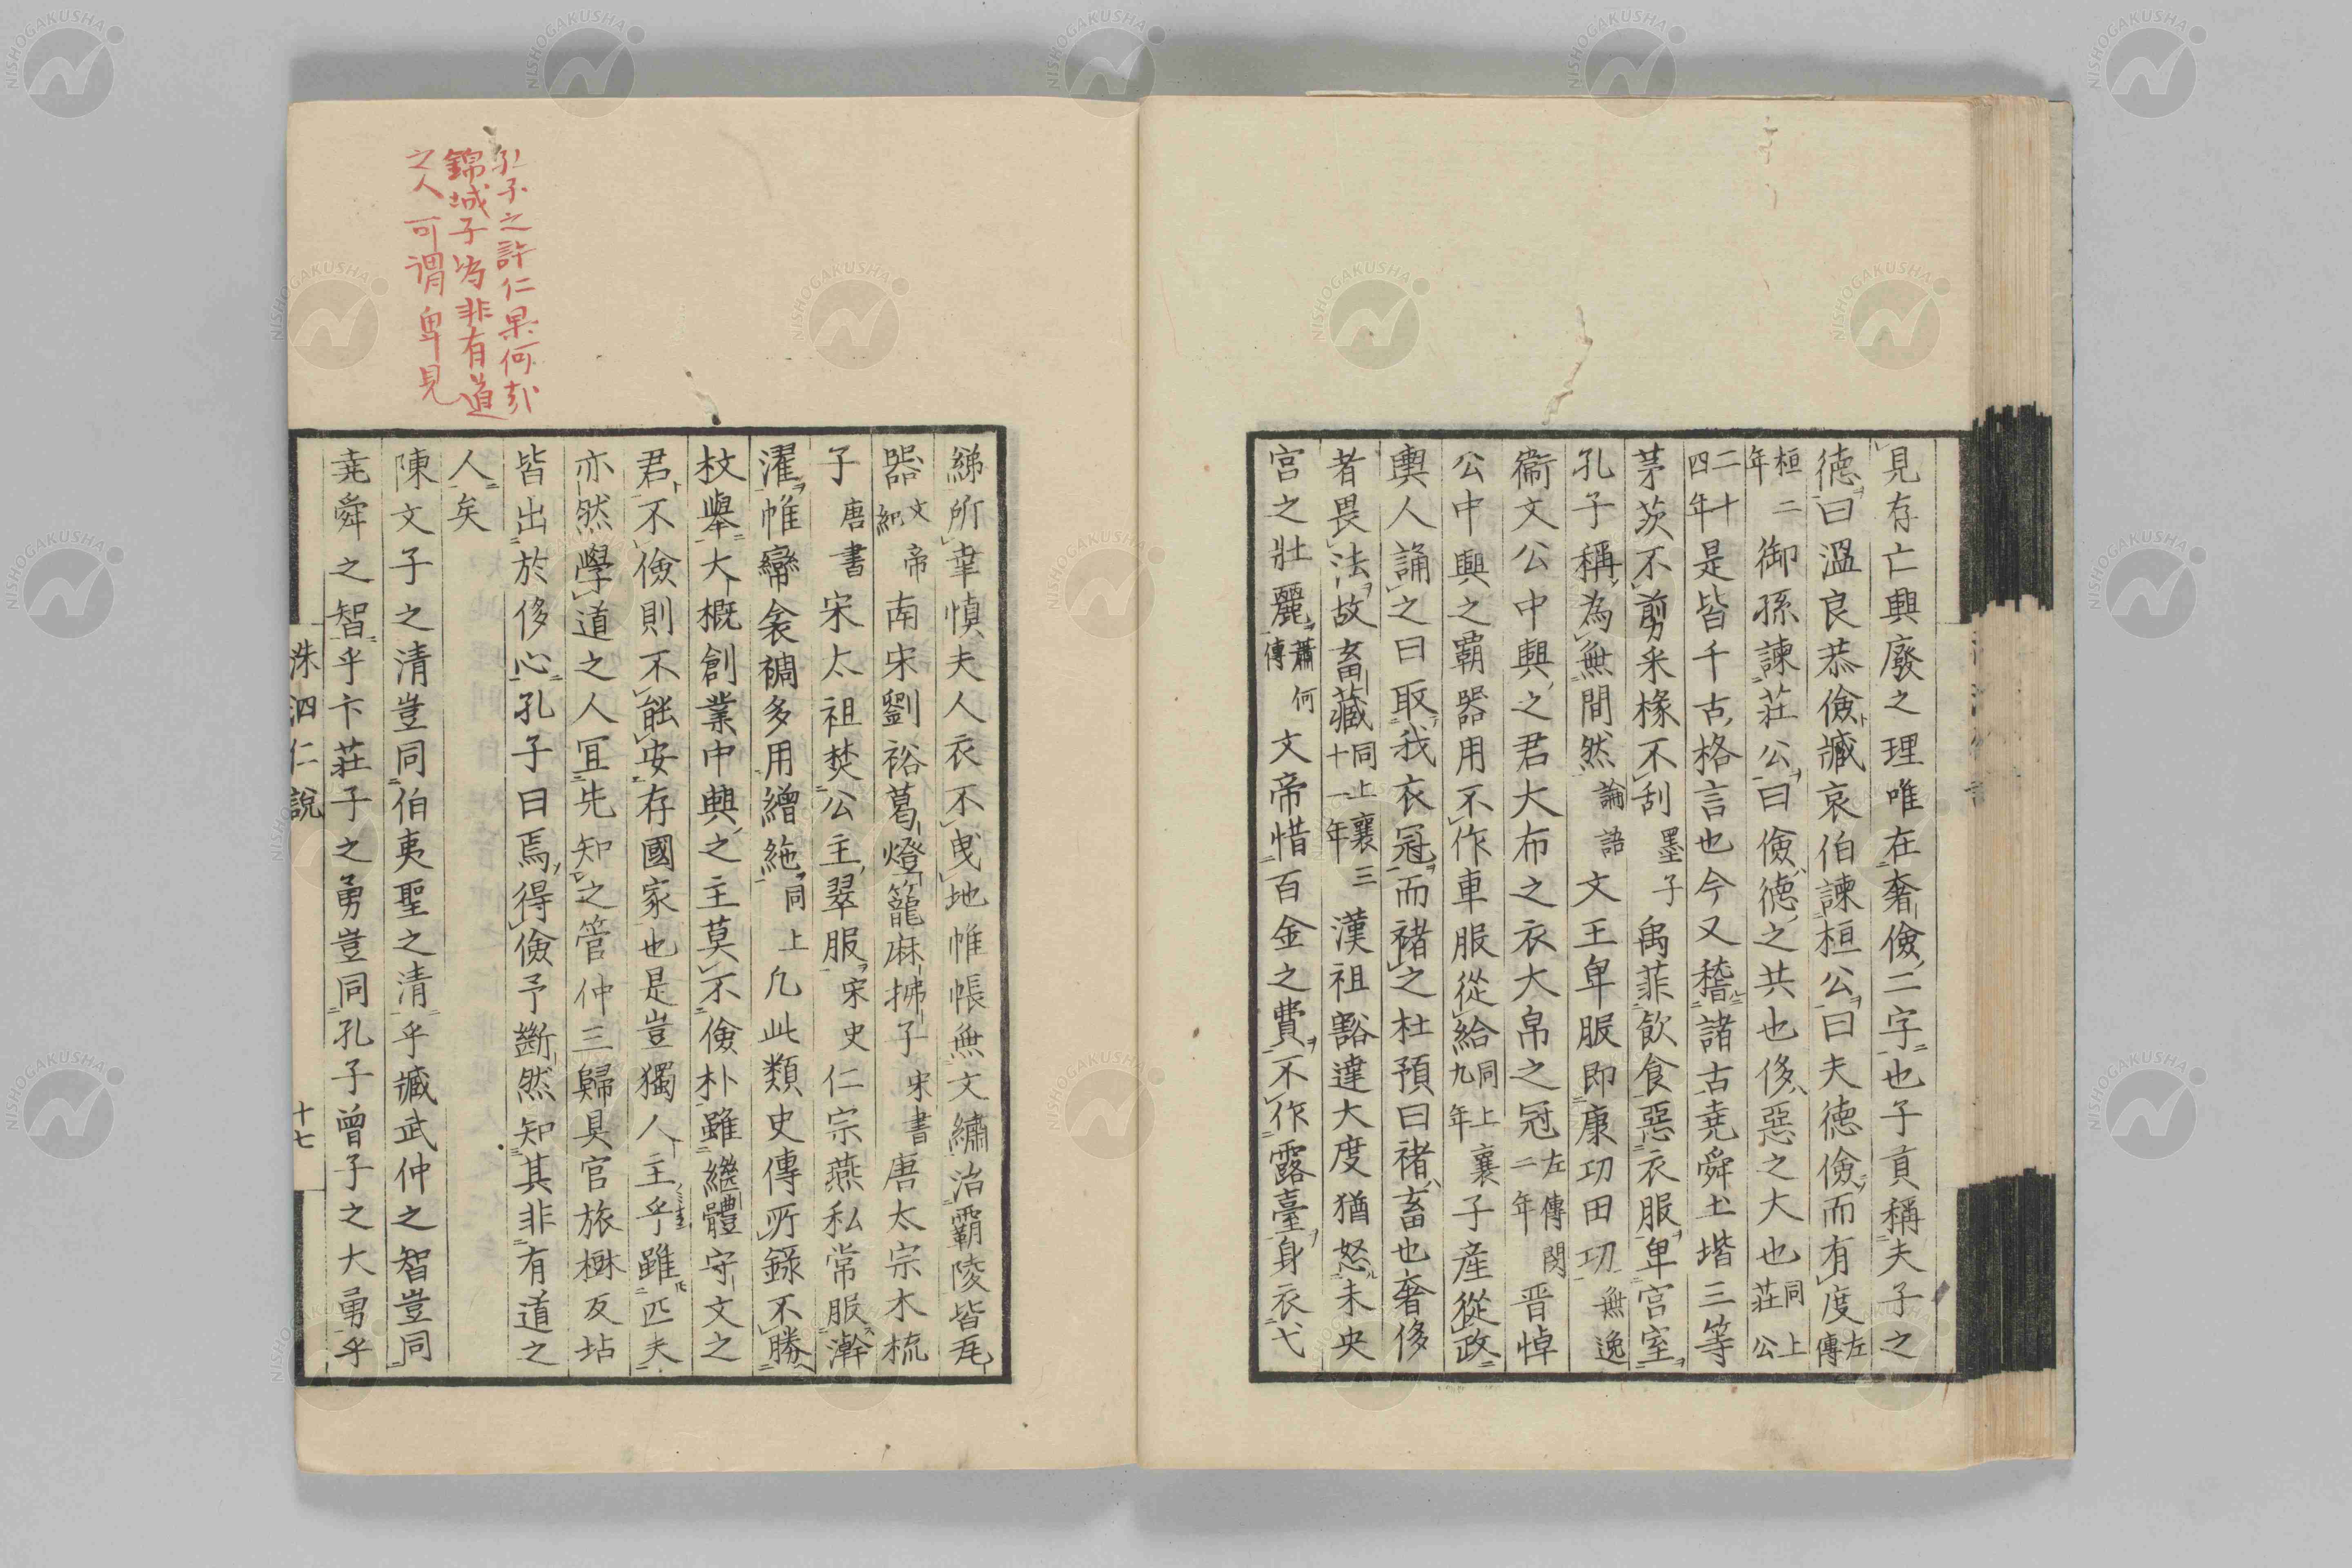 見存亡興廢之理唯在奢儉二字也子貢稱夫子之
德曰溫良恭儉臧哀伯諫桓公曰夫德儉而有度左傳
桓二年御孫諫莊公曰儉德之共也侈惡之大也同上莊公
二十四年是皆千古格言也今又稽諸古堯舜土堦三等
茅茨不剪采椽不刮墨子禹菲飲食惡衣服卑宮室
孔子稱為無間然論語文王卑服即康功田功無逸
衞文公中興之君大布之衣大帛之冠左傳閔二年晋悼
公中興之霸器用不作車服從給同上襄九年子產從政
輿人誦之曰取我衣冠而褚之杜預曰褚畜也奢侈
者畏法故畜藏同上襄三十一年漢祖豁達大度猶怒未央
宮之壯麗蕭何傳文帝惜百金之費不作露臺身衣弋
綈所幸慎夫人衣不曳地帷帳無文繡治霸陵皆瓦
器文帝紀南宋劉裕葛燈籠麻拂子宋書唐太宗木梳
子唐書宋太祖焚公主翠服宋史仁宗燕私常服澣
濯帷帟衾裯多用繒絁同上凡此類史傳所錄不勝
枚舉大概創業中興之主莫不儉朴雖繼體守文之
君不儉則不能安存國家也是豈獨人主乎雖匹夫
亦然學道之人宜先知之管仲三歸具官旅樹反坫
皆出於侈心孔子曰焉得儉予斷然知其非有道之
人矣
陳文子之清豈同伯夷聖之清乎臧武仲之智豈同
堯舜之智乎卞莊子之勇豈同孔子曾子之大勇乎
洙泗仁說
十七
孔子之許仁果何引
錦城子為非有道
之人可謂卑見